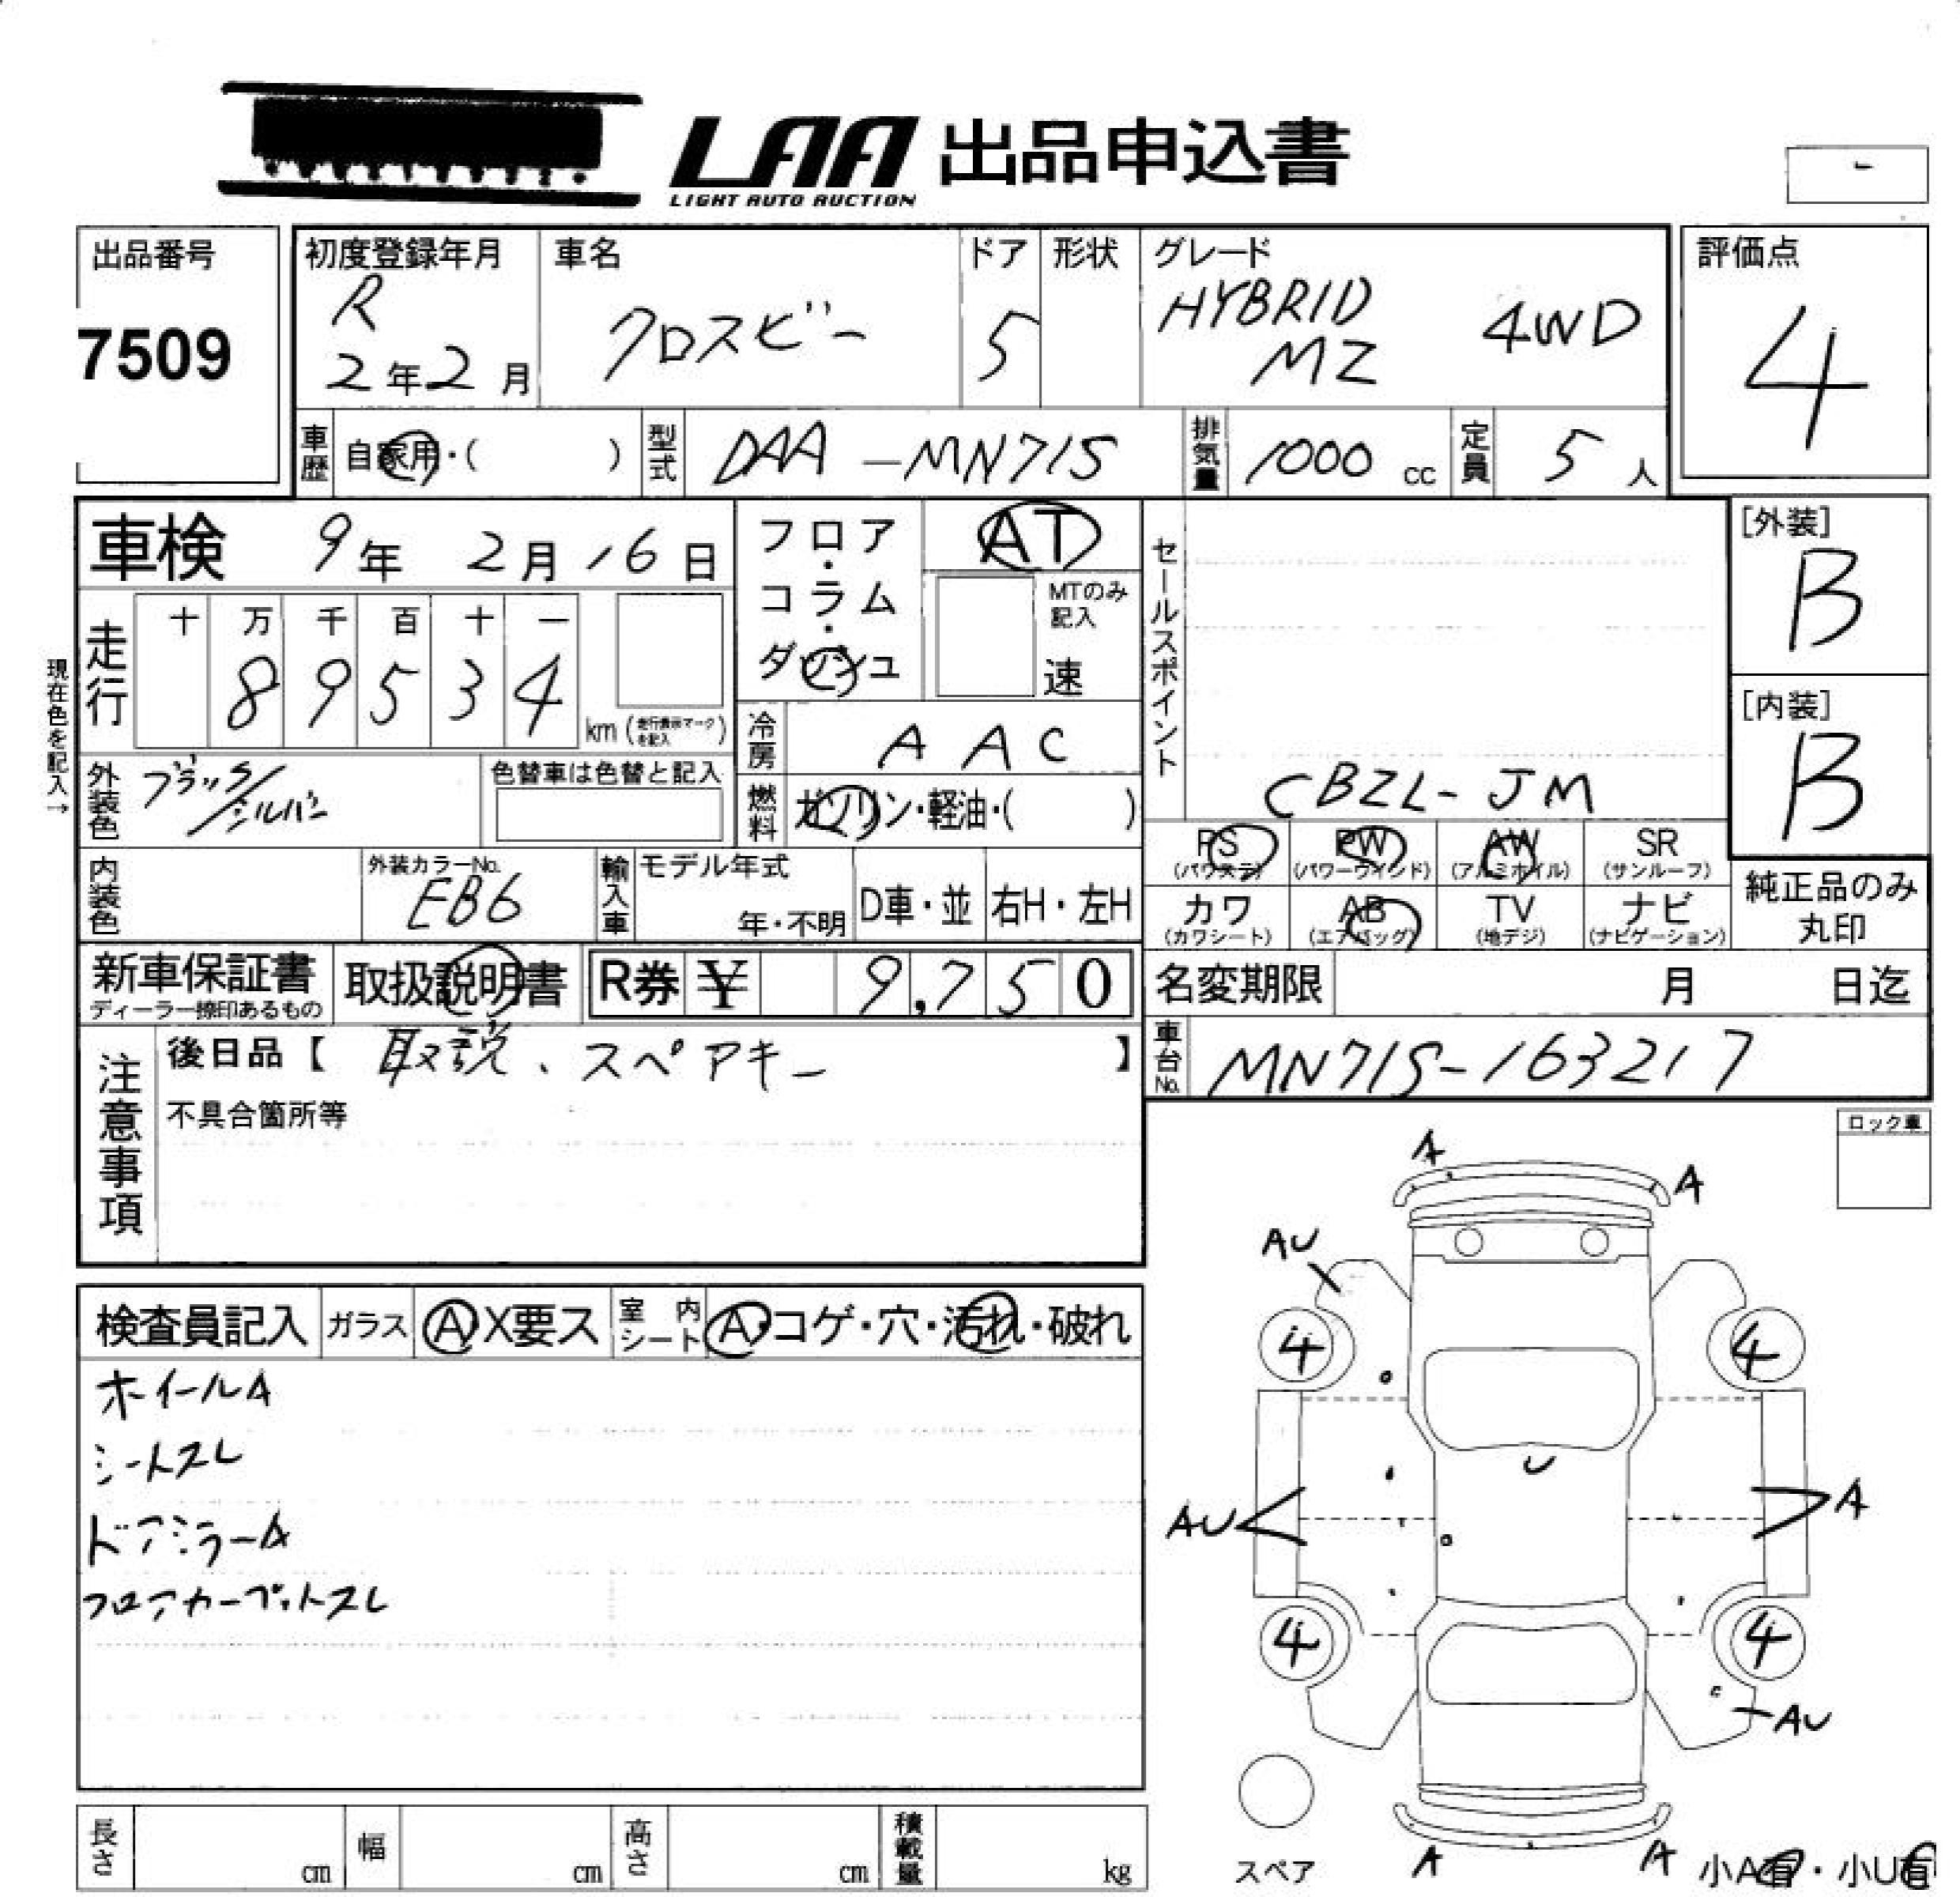 LAA 出品申込書
LIGHT AUTO AUCTION
-
出品番号
7509
初度登録年月
R
2年2月
車名
クロスビー
ドア
5
形状
グレード
HYBRID
MZ
4WD
評価点
4
車歴
自家用・( )
型式
DAA-MN71S
排気量
1000 cc
定員
5人
車検 9年 2月 16日
フロア・コラム・ダッシュ
AT
MTのみ記入
速
セールスポイント
CBZL-JM
[外装]
B
[内装]
B
現在色を記入→
走行
十 万 千 百 十 一
8 9 5 3 4
km (走行表示マークを記入)
冷房
AAC
外装色
ブラック/シルバー
色替車は色替と記入
燃料
ガソリン・軽油・( )
PS (パワステ)
PW (パワーウィンド)
AW (アルミホイル)
SR (サンルーフ)
カワ (カワシート)
AB (エアバッグ)
TV (地デジ)
ナビ (ナビゲーション)
純正品のみ
丸印
内装色
外装カラーNo.
EB6
輸入車
モデル年式
年・不明
D車・並
右H・左H
新車保証書
ディーラー捺印あるもの
取扱説明書
R券 ¥ 9,750
名変期限 月 日迄
注意事項
後日品【 取説、スペアキー 】
不具合箇所等
車台No.
MN71S-163217
ロック車
検査員記入
ガラス
A X要ス
室内シート
A・コゲ・穴・汚れ・破れ
ホイールA
シートスレ
ドアミラーA
フロアカーペットスレ
A
A
AU
4
4
U
AU
A
4
4
AU
スペア
A
A
小A有・小U有
長さ cm
幅 cm
高さ cm
積載量 kg